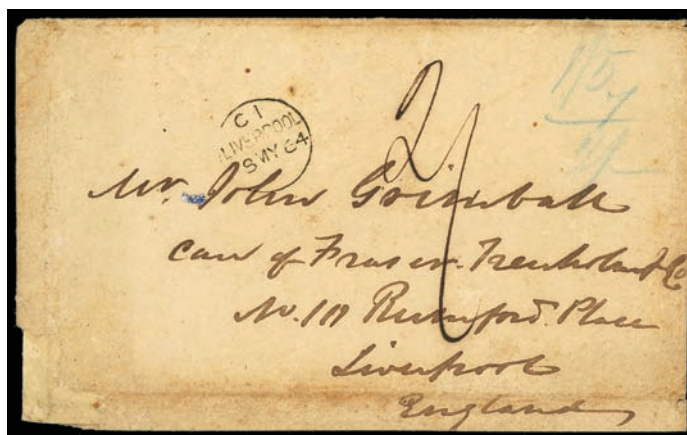 C 1
LIVERPOOL
8 MY 64
Mr. John Grimball
care of Fraser. Trenholm & Co
No. 10 Rumford. Place
Liverpool
England